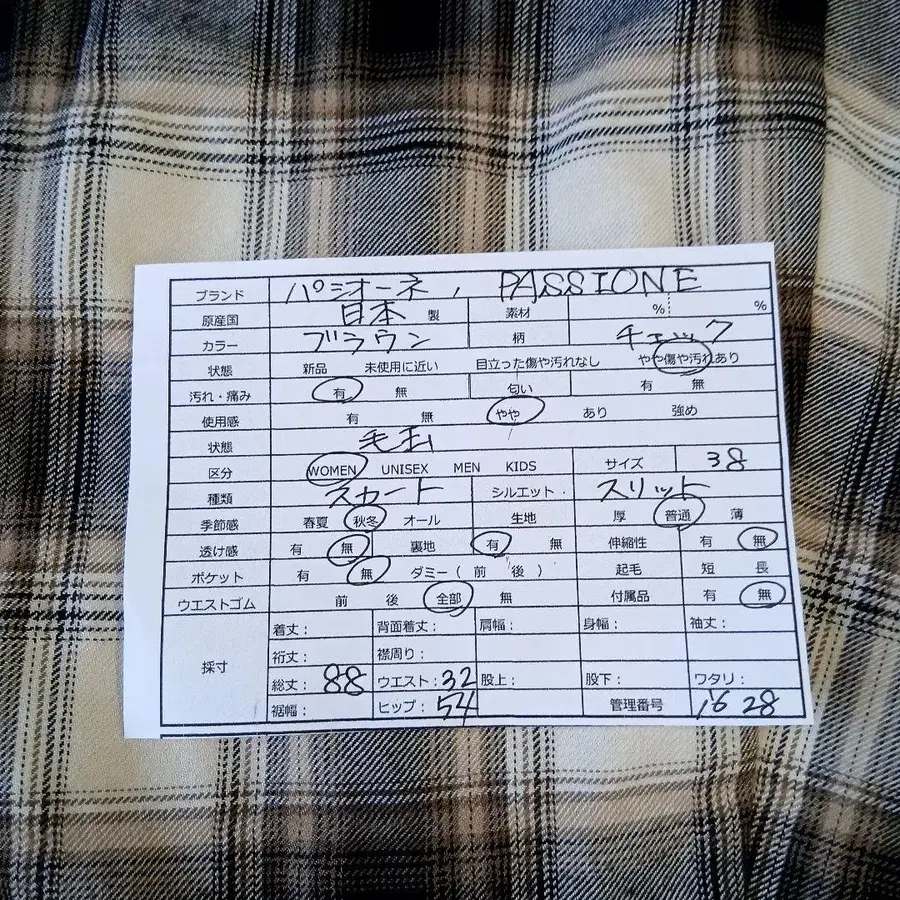 ブランド パシオーネ, PASSIONE
原産国 日本 製 素材 % %
カラー ブラウン 柄 チェック
状態 新品 未使用に近い 目立った傷や汚れなし やや傷や汚れあり
汚れ・痛み 有 無 匂い 有 無
使用感 有 無 やや あり 強め
状態 毛玉
区分 WOMEN UNISEX MEN KIDS サイズ 38
種類 スカート シルエット. スリット
季節感 春夏 秋冬 オール 生地 厚 普通 薄
透け感 有 無 裏地 有 無 伸縮性 有 無
ポケット 有 無 ダミー ( 前 後 ) 起毛 短 長
ウエストゴム 前 後 全部 無 付属品 有 無
採寸 着丈: 背面着丈: 肩幅: 身幅: 袖丈:
裄丈: 襟周り:
総丈: 88 ウエスト: 32 股上: 股下: ワタリ:
裾幅: ヒップ: 54 管理番号 16 28